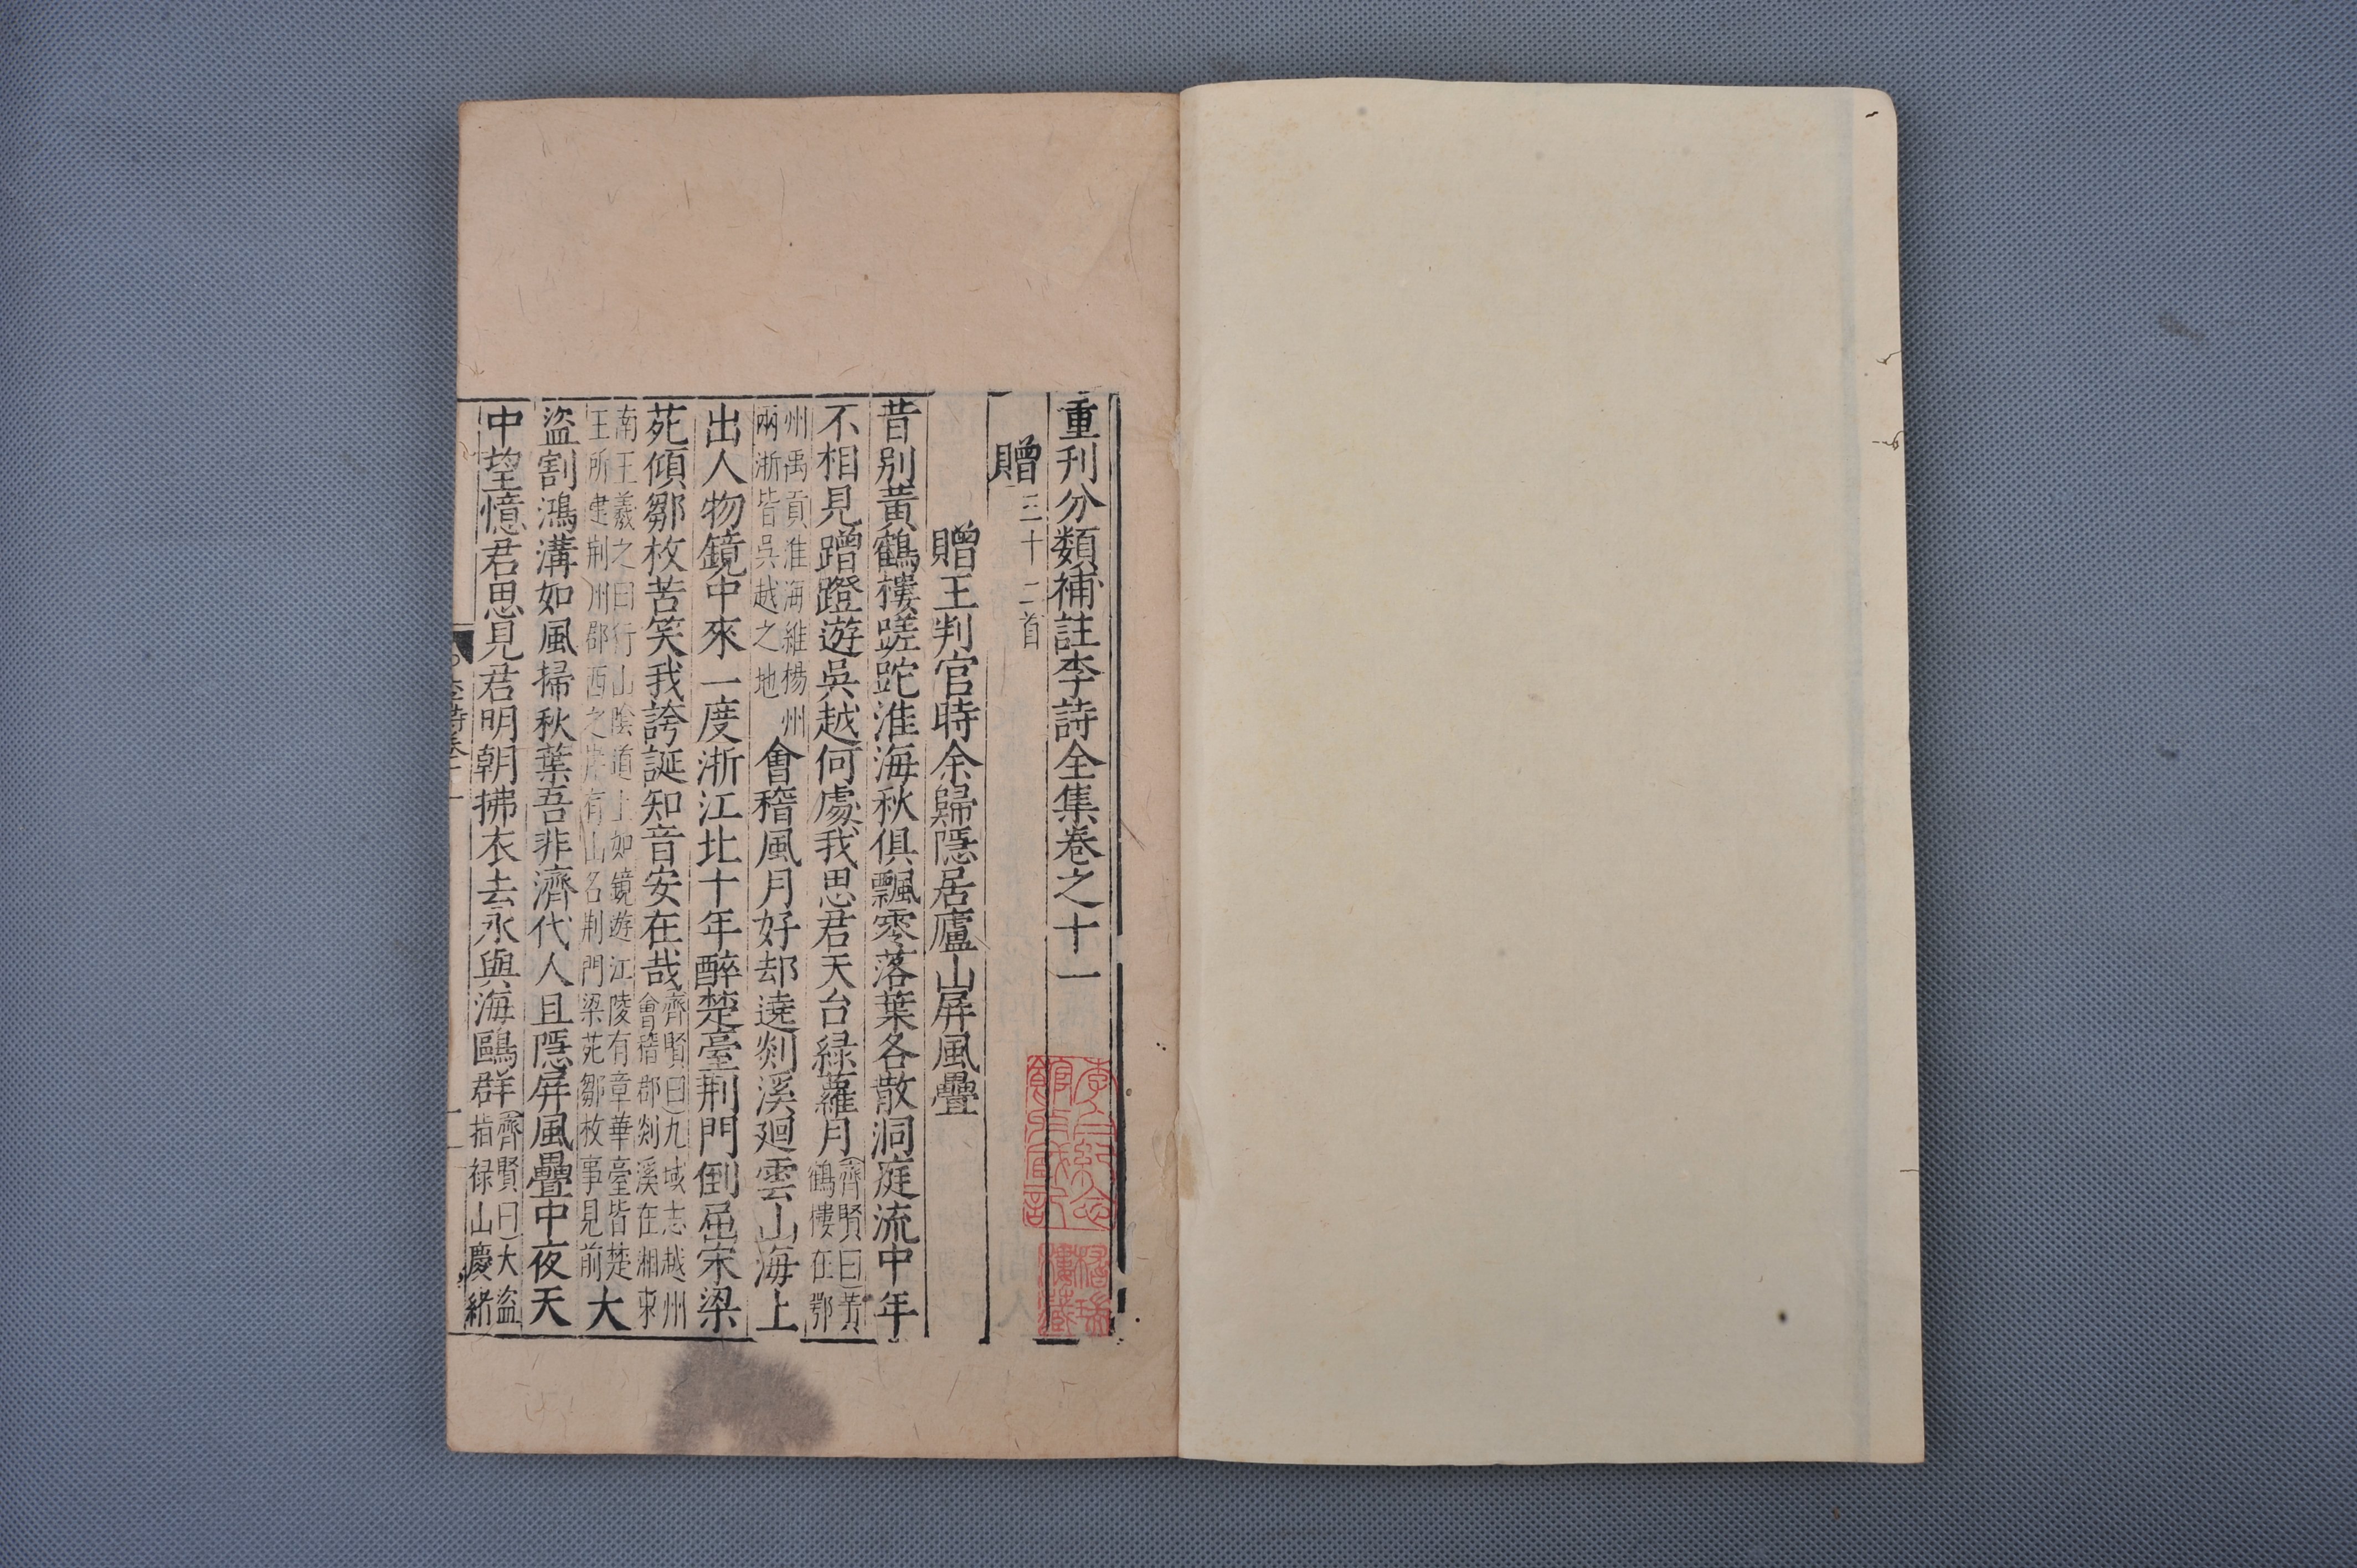 重刊分類補註李詩全集卷之十一
贈三十二首
贈王判官時余歸隱居廬山屏風疊
昔别黃鶴樓蹉跎淮海秋俱飄零落葉各散洞庭流中年
不相見蹭蹬遊吳越何處我思君天台緑蘿月齊賢曰黃鶴樓在鄂
州禹貢淮海維楊州兩浙皆吳越之地會稽風月好却遶剡溪廻雲山海上
出人物鏡中來一度浙江北十年醉楚臺荆門倒屈宋梁
苑傾鄒枚苦笑我誇誕知音安在哉齊賢曰九域志越州會稽郡剡溪在湘東
南王羲之曰行山陰道上如鏡遊江陵有章華臺皆楚王所建荆州郡西之岸有山名荆門梁苑鄒枚事見前大
盜割鴻溝如風掃秋葉吾非濟代人且隱屏風疊中夜天
中望憶君思見君明朝拂衣去永與海鷗群齊賢曰大盜指禄山慶緒
李詩卷十一
李一氓紀念館收藏記
榰瑞樓藏